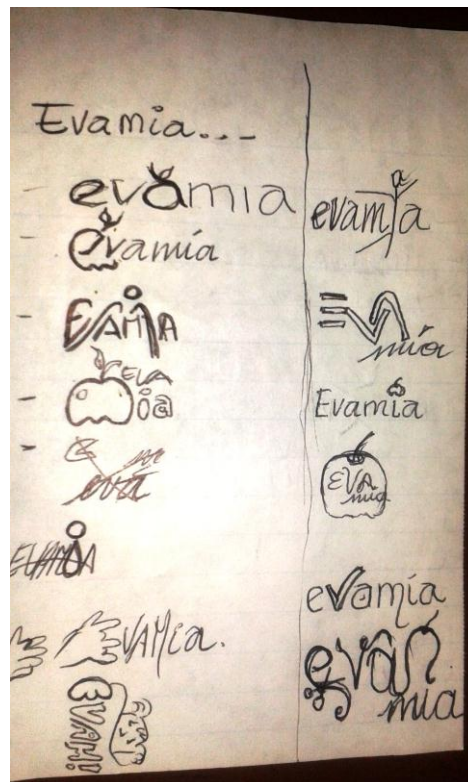 Evamia...
evamia
evamía
EVAMIA
EVA
ia
eva
EVAMIA
EVAMía.
evamía
mía
Evamia
EVA
mia
evamía
evan
mia